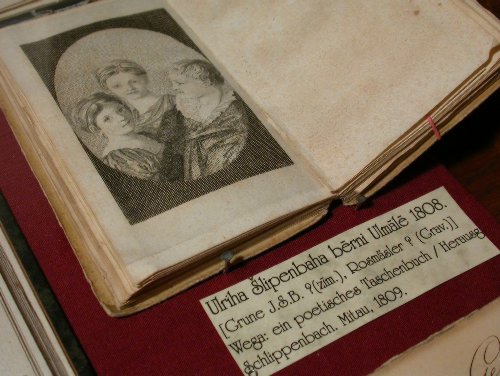 Ulriha Šlipenbaha bērni Ulmālē 1808.
[Grune J.S.B. ?(zīm.), Rosmäsler ? (Grav.)]
Wega: ein poetisches Taschenbuch / Herausg
Schlippenbach. Mitau, 1809.